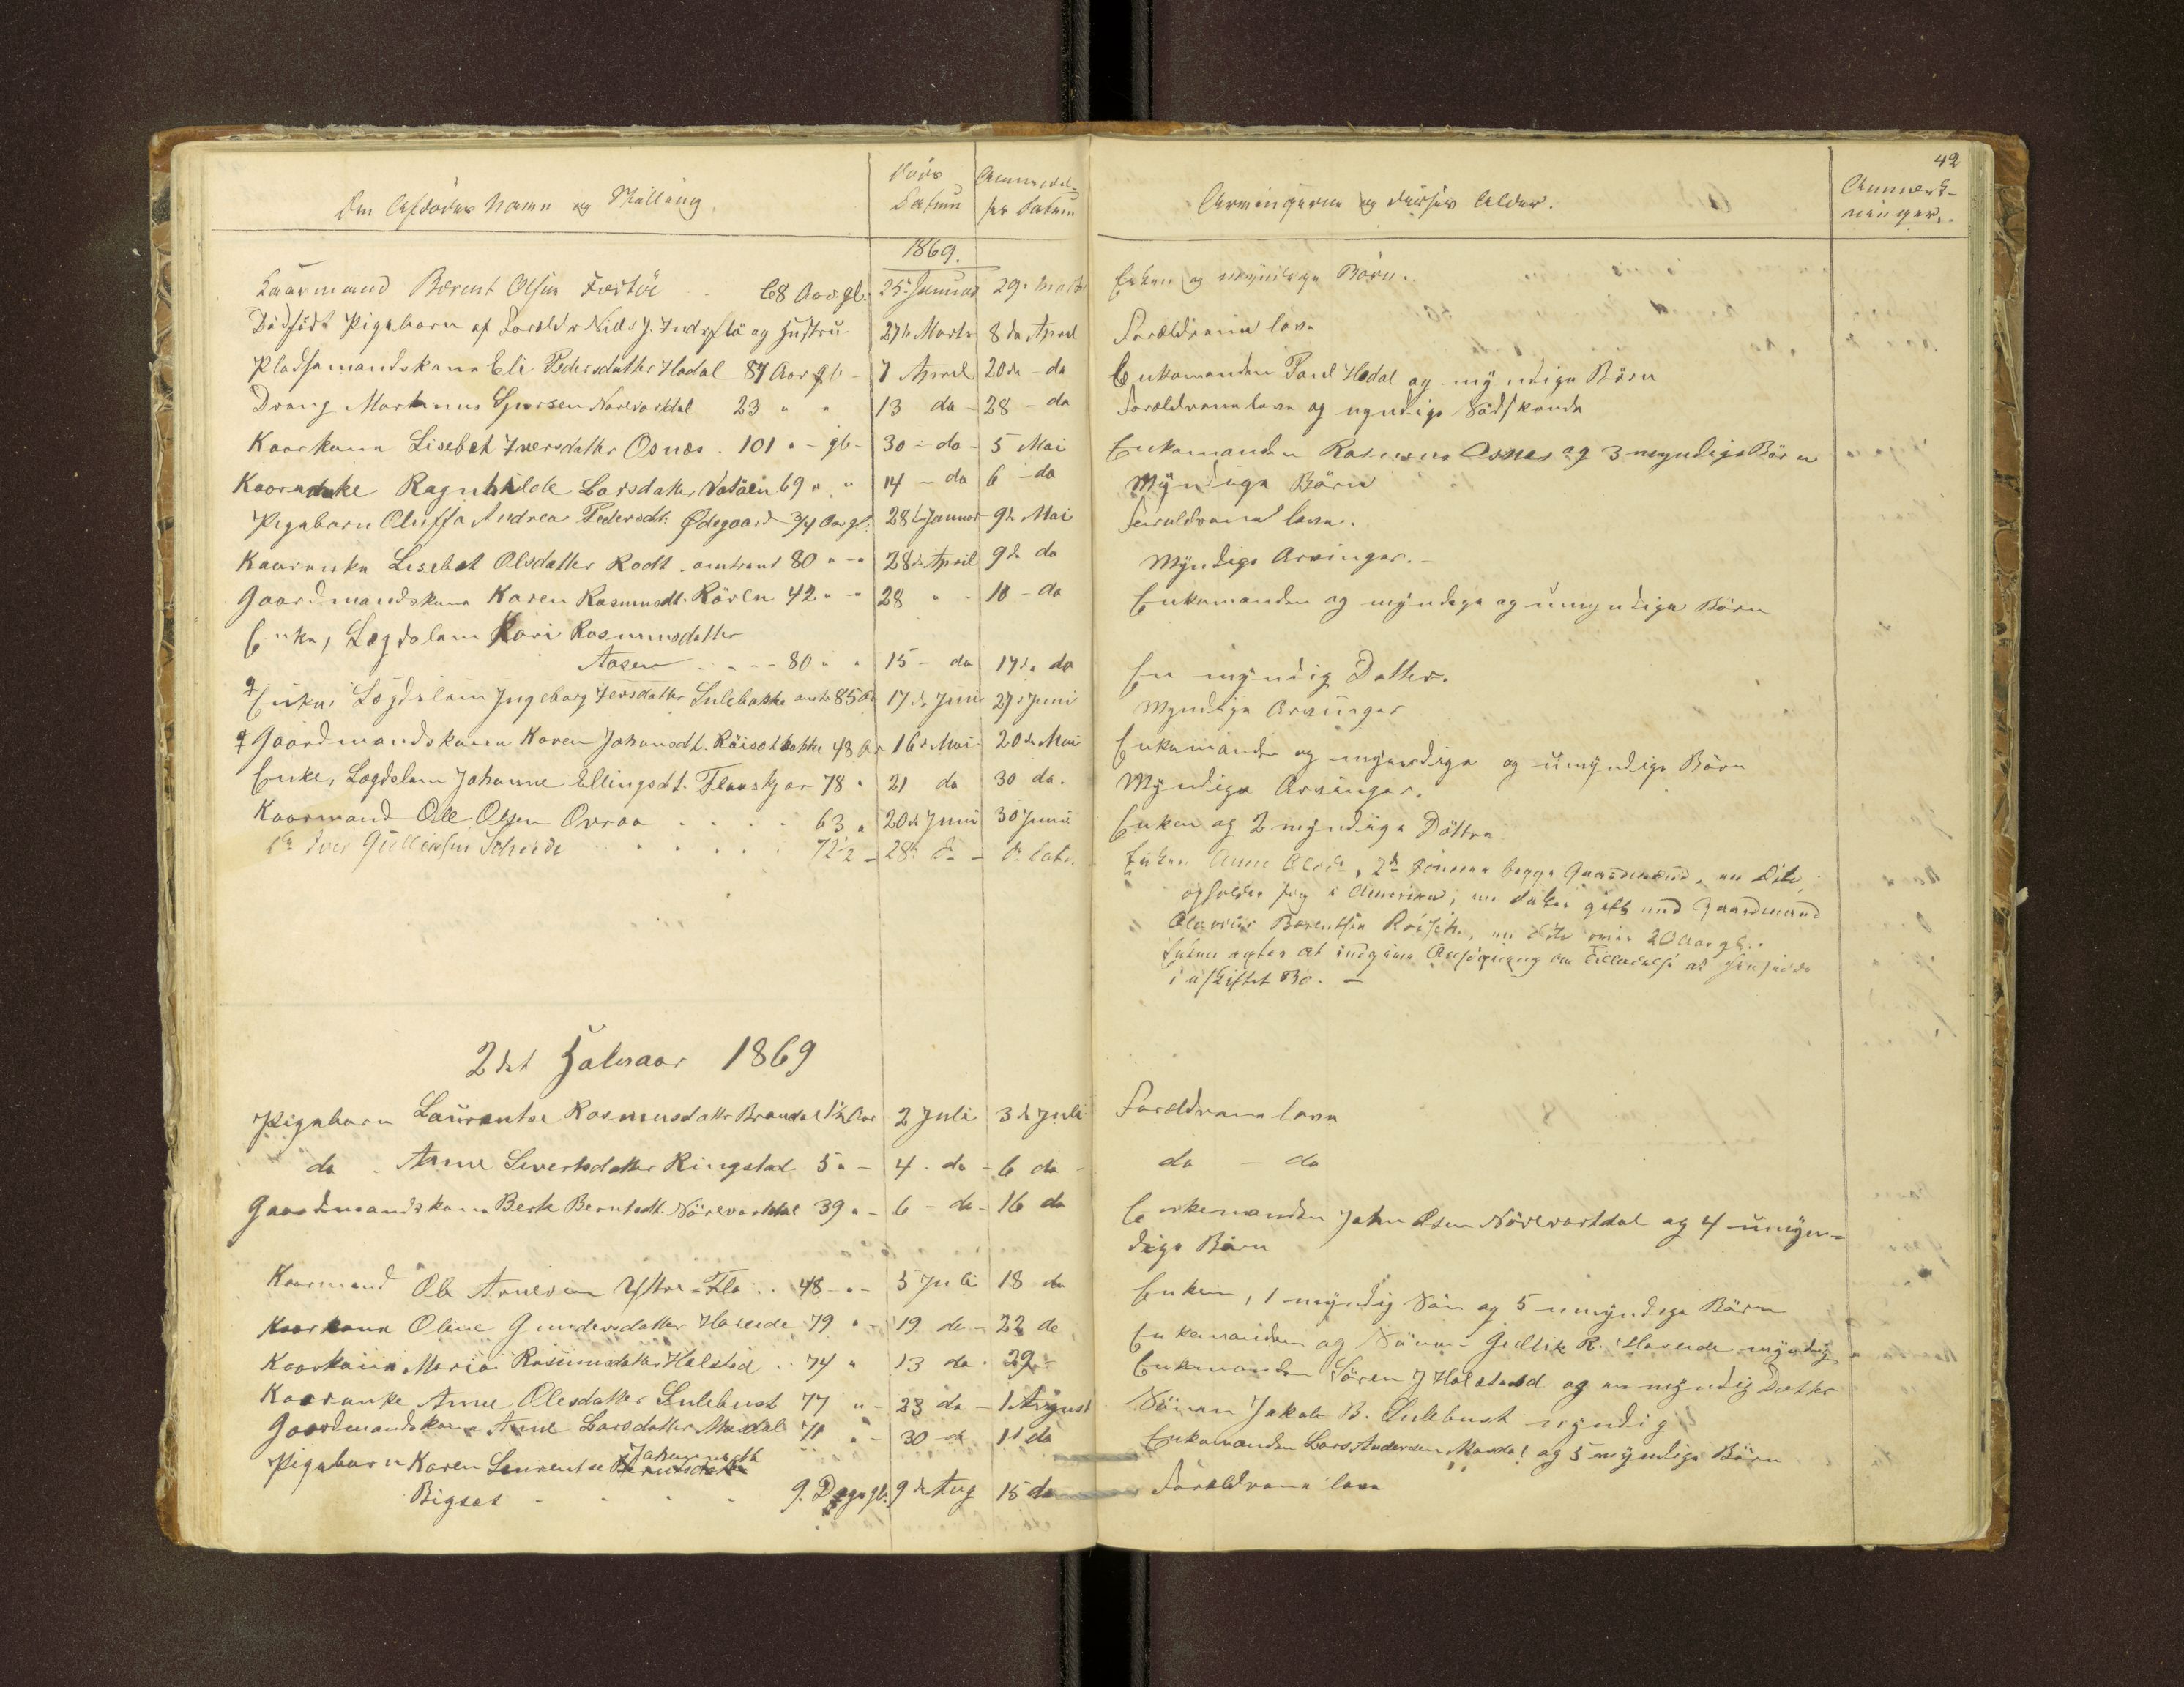 42
Den Afdødes Navn og Stilling.
Døds Datum
Anmeldelses Datum
Arvingerne og disses Alder.
Anmærkninger.
1869.
Kaarmand Berent Olsen Festöe 68 Aar gl. 25 Januar 29. Marts Enken og myndige Börn.
Dödfödt Pigebarn af Forældre Niels J. og Hustru 27de Marts 8de April Forældrene leve
Pladsemandskone Eli Pedersdatter Hodal 87 Aar gl - 7 April 20de - do Enkemanden Poul Hodal og myndige Börn
Dreng Martinus Sjursen Nørevartdal 23 " " 13 do - 28 - do Forældrene leve og myndige Södskende
Kaarkone Lisebet Iversdatter Osnes. 101 " - gl - 30 - do - 5 Mai Enkemanden Rasmus Osnes og 3 myndige Börn
Kaarenke Ragnhilde Larsdatter Vatöen 69 " " 14 - do 6 - do Myndige Börn
Pigebarn Oluffa Andrea Pedersdt: Ødegaard 3/4 Aar gl. 28de Januar 9de Mai Forældrene leve.
Kaarenke Lisebet Olsdatter Rodt. omtrent 80 " - " 28de April 9de do Myndige Arvinger. -
Gaardmandskone Karen Rasmusdt. Rören 42 " - " 28 " - 10 - do Enkemanden og myndige og umyndige Börn
Enke, Lægdslem Kari Rasmusdatter
Aasen - - - - 80 " " 15 - do 17de do En myndig Datter.
Enke, Lægdslem Ingeborg Iversdatter Sulebakke omtr 85 Aar 17de Juni 27de Juni Myndige Arvinger
Gaardmandskone Karen Johansdt. Röisetbakke 48 Aar 16de Mai 20de Mai Enkemanden og myndige og umyndige Börn
Enke, Lægdslem Johanne Ellingsdt. Flaaskjær 78 " 21 do 30 do. Myndige Arvinger.
Kaarmand Ole Olsen Ovraa . . . . 63 " 20de Juni 30 Juni Enken og 2 myndige Döttre
do Iver Gulliksen Scheide . . . . . 72 1/2 - 28de do - do dato. Enken Anne Olsdr, 2de Sönner begge Gaardmænd, en Dito
opholder sig i Amerika; en datter gift med Gaardmand
Olavius Berentsen Röise, en Dito over 20 Aar gl.
Enken agter at indgaae Ansögning om Tilladelse at hensidde
i uskiftet Bo. -
2det Halvaar 1869
Pigebarn Laurentse Rasmusdatter Brandal 1 1/2 Aar 2 Juli 3de Juli Forældrene leve
do . Anne Sivertsdatter Ringstad. 5 " - 4. do - 6 do - do - do
Gaardmandskone Berte Berntsdt. Nörevartdal 39 " - 6 - do - 16 do Enkemanden John Osen Nörevartdal og 4 umyn=
dige Börn
Kaarmand Ole Arnesen Yttre-Flø . . 48 - " - 5 Juli 18 do Enken, 1 myndig Sön og 5 umyndige Börn
Kaarkone Oline Gundersdatter Hareide 79 " - 19 do - 22 do Enkemanden og Sönnen Gullik R. Hareide myndig
Kaarkone Maria Rasmusdatter Halstad . . 74 " 13 do. 29 - Enkemanden Sören J Halstad og en myndig Datter
Kaarenke Anne Olesdatter Sulebust 77 " - 23 do - 1 August Sönnen Jakob B. Sulebust myndig
Gaardmandskone Anne Larsdatter Masdal 71 " - 30 do 1st do Enkemanden Lars Andersen Masdal og 5 myndige Börn
Pigebarn Karen Laurentse Johannesdt
Bigset - - - - 9. Dage gl. 9de Aug 15 do Forældrene leve